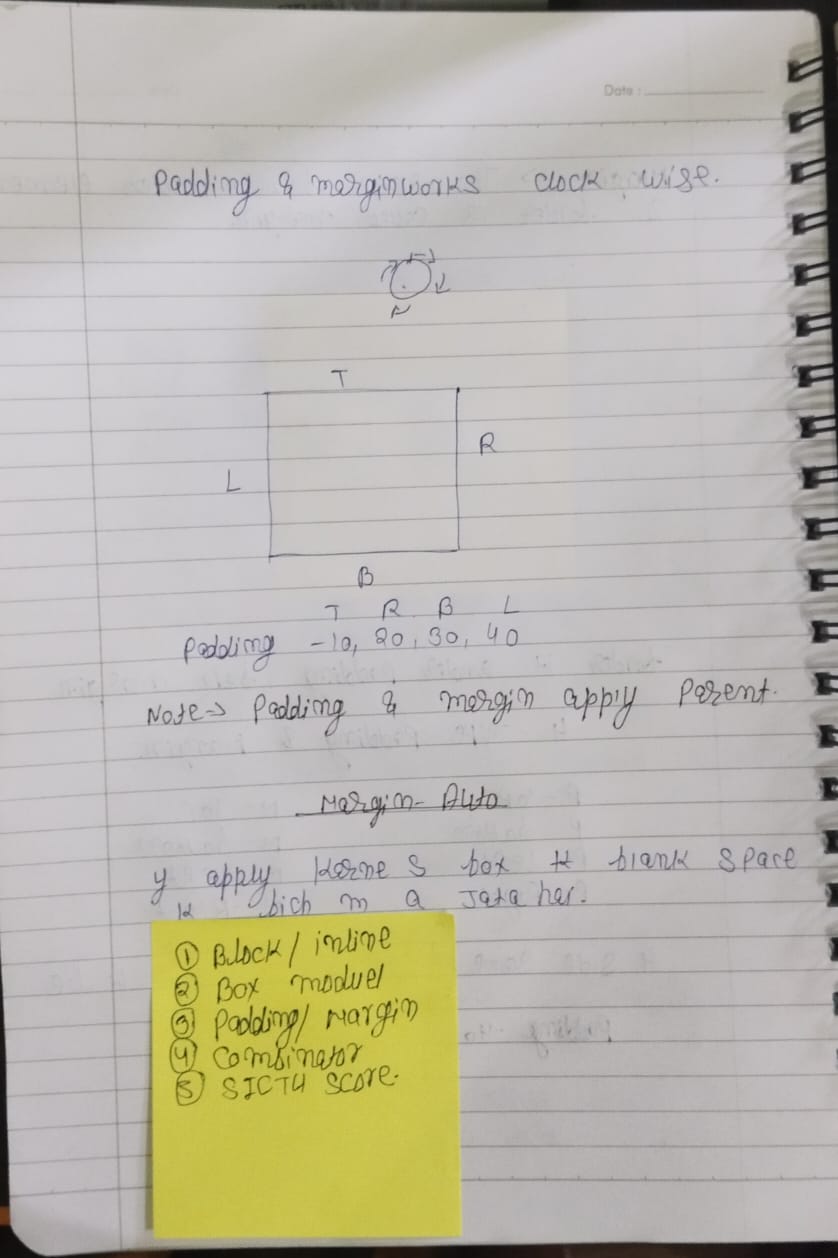 Date :
Padding & margin works clock wise.
T
R
L
B
T R B L
Padding -10, 20, 30, 40
Note→ Padding & margin apply Parent.
Margin- Auto
y apply karne s box k blank space
k bich m a Jata hai.
① Block/inline
② Box moduel
③ Padding/Margin
④ Combinator
⑤ SICTU Score.